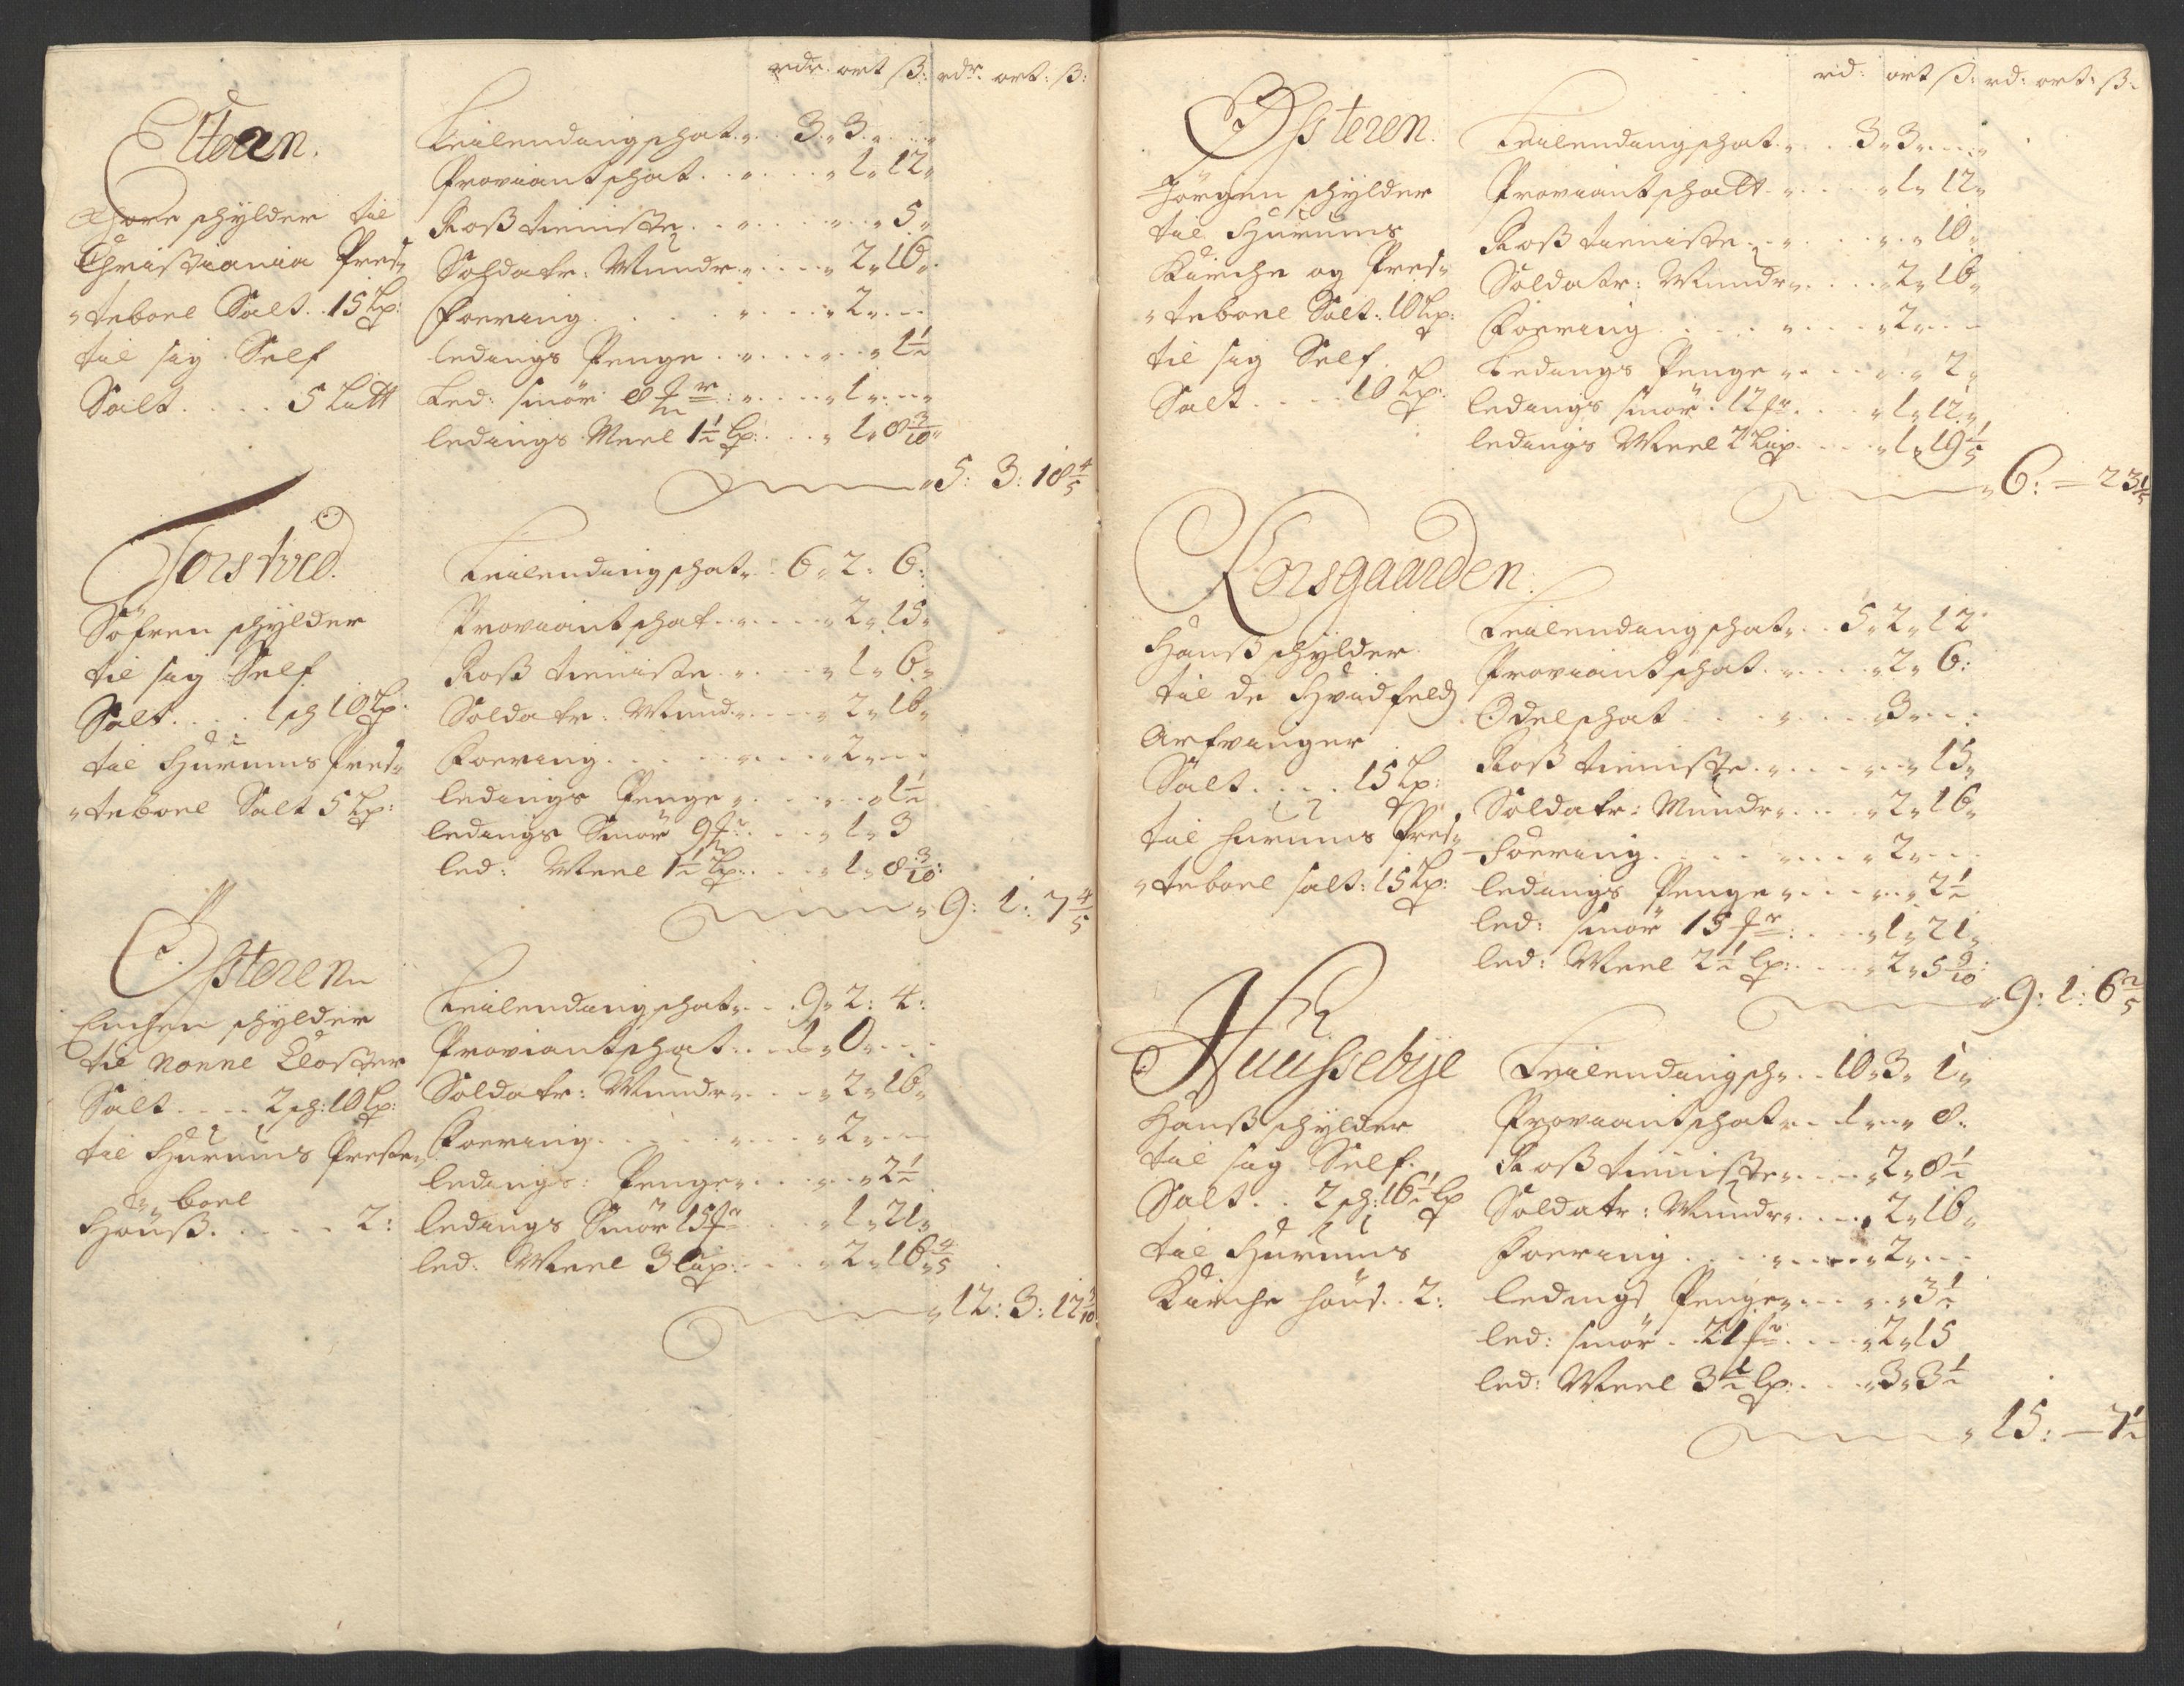 rdr. ort ß: rdr. ort: ß:
Elteren.
Thore schylder til
Christiania Pres„
„teboel Salt. 15 Lp:
til sig Self
Salt.... 5 Litt
Leilendingschat „ 3 „ 3 „
Proviantschat „ 1 „ 12 „
Rostieniste „ 5 „
Soldatr: Mundr „ 2 „ 16 „
Foering „ 2 „
ledings Penge „ 1½
Led: smör 8 „ 1 „
ledings Meel 1½ Lp: „ 1 „ 8 3/10
5: 3: 18 4/5
Torstved.
Söfren schylder
til sig Self
Salt.... 1 sch 10 Lp.
til Hurums Pres„
„teboel Salt 5 Lp:
Leilendingschat „ 6 „ 2: 6:
Proviantschat „ 2 „ 15 „
Rostieniste „ 1 „ 6 „
Soldatr: Mund „ 2 „ 16 „
Foering „ 2 „
ledings Penge „ 1½
ledings Smör 9 „ 1 „ 3
led: Meel 1½ Lp: „ 1 „ 8 3/10:
9: 1: 7 4/5
Österen
schylder
til Nonne Closter
Salt.... 2 sch: 10 Lp:
til Hurums Preste„
„boel
Höns..... 2:
Leilendingschat „ 9 „ 2: 4:
Proviantschat „ 1 „ 0 „
Soldatr: Mundr „ 2 „ 16 „
Foering „ 2 „
ledings: Penge „ 2½
ledings Smör 15 „ 1 „ 21 „
led: Meel 3 Lisp: „ 2 „ 16 4/5
12: 3: 12 3/10
rd: ort ß: rd: ort: ß:
Össteren.
Jörgen schylder
til Hurums
Kirche og Pres„
„teboel Salt: 10 Lp:
til sig Self
Salt.... 10 Lp:
Leilendingschat „ 3 „ 3 „
Proviantschatt „ 1 „ 12 „
Rostieniste „ 10 „
Soldatr: Mundr „ 2 „ 16 „
Foering „ 2 „
Ledings Penge „ 2 „
ledings smör 12 „ 1 „ 12 „
ledings Meel 2 Lisp. „ 1 „ 19 1/5
6: — 23 1/5
Korsgaarden.
Hans schylder
til de Hvidfeldz
Arfvinger
Salt.... 15 Lp:
til Hurums Pres„
„teboel salt: 15 Lp:
Leilendingschat „ 5 „ 2 „ 12
Proviantschat „ 2 „ 6:
Odelschat „ 3 „
Rostieniste „ 15 „
Soldatr: Mundr „ 2 „ 16 „
Foering „ 2 „
ledings Penge „ 2½
led: smör 15 „ 1 „ 21 „
led: Meel 2½ Lp: „ 2 „ 5 9/10:
9: 1: 6 2/5
Huussebye
Hans schylder
til sig Self.
Salt.. 2 sch: 16½ Lp
til Hurums
Kirche höns. 2:
Leilendingsch „ 10 „ 3 „ 1 „
Proviantschat „ 1 „ 8:
Rostieniste „ 2 „ 8½
Soldatr: Mundr „ 2 „ 16 „
Foering „ 2 „
ledings Penge „ 3½
led: smör. 21 „ 2 „ 15
led: Meel 3½ Lp: „ 3 „ 3½
15: — 7½